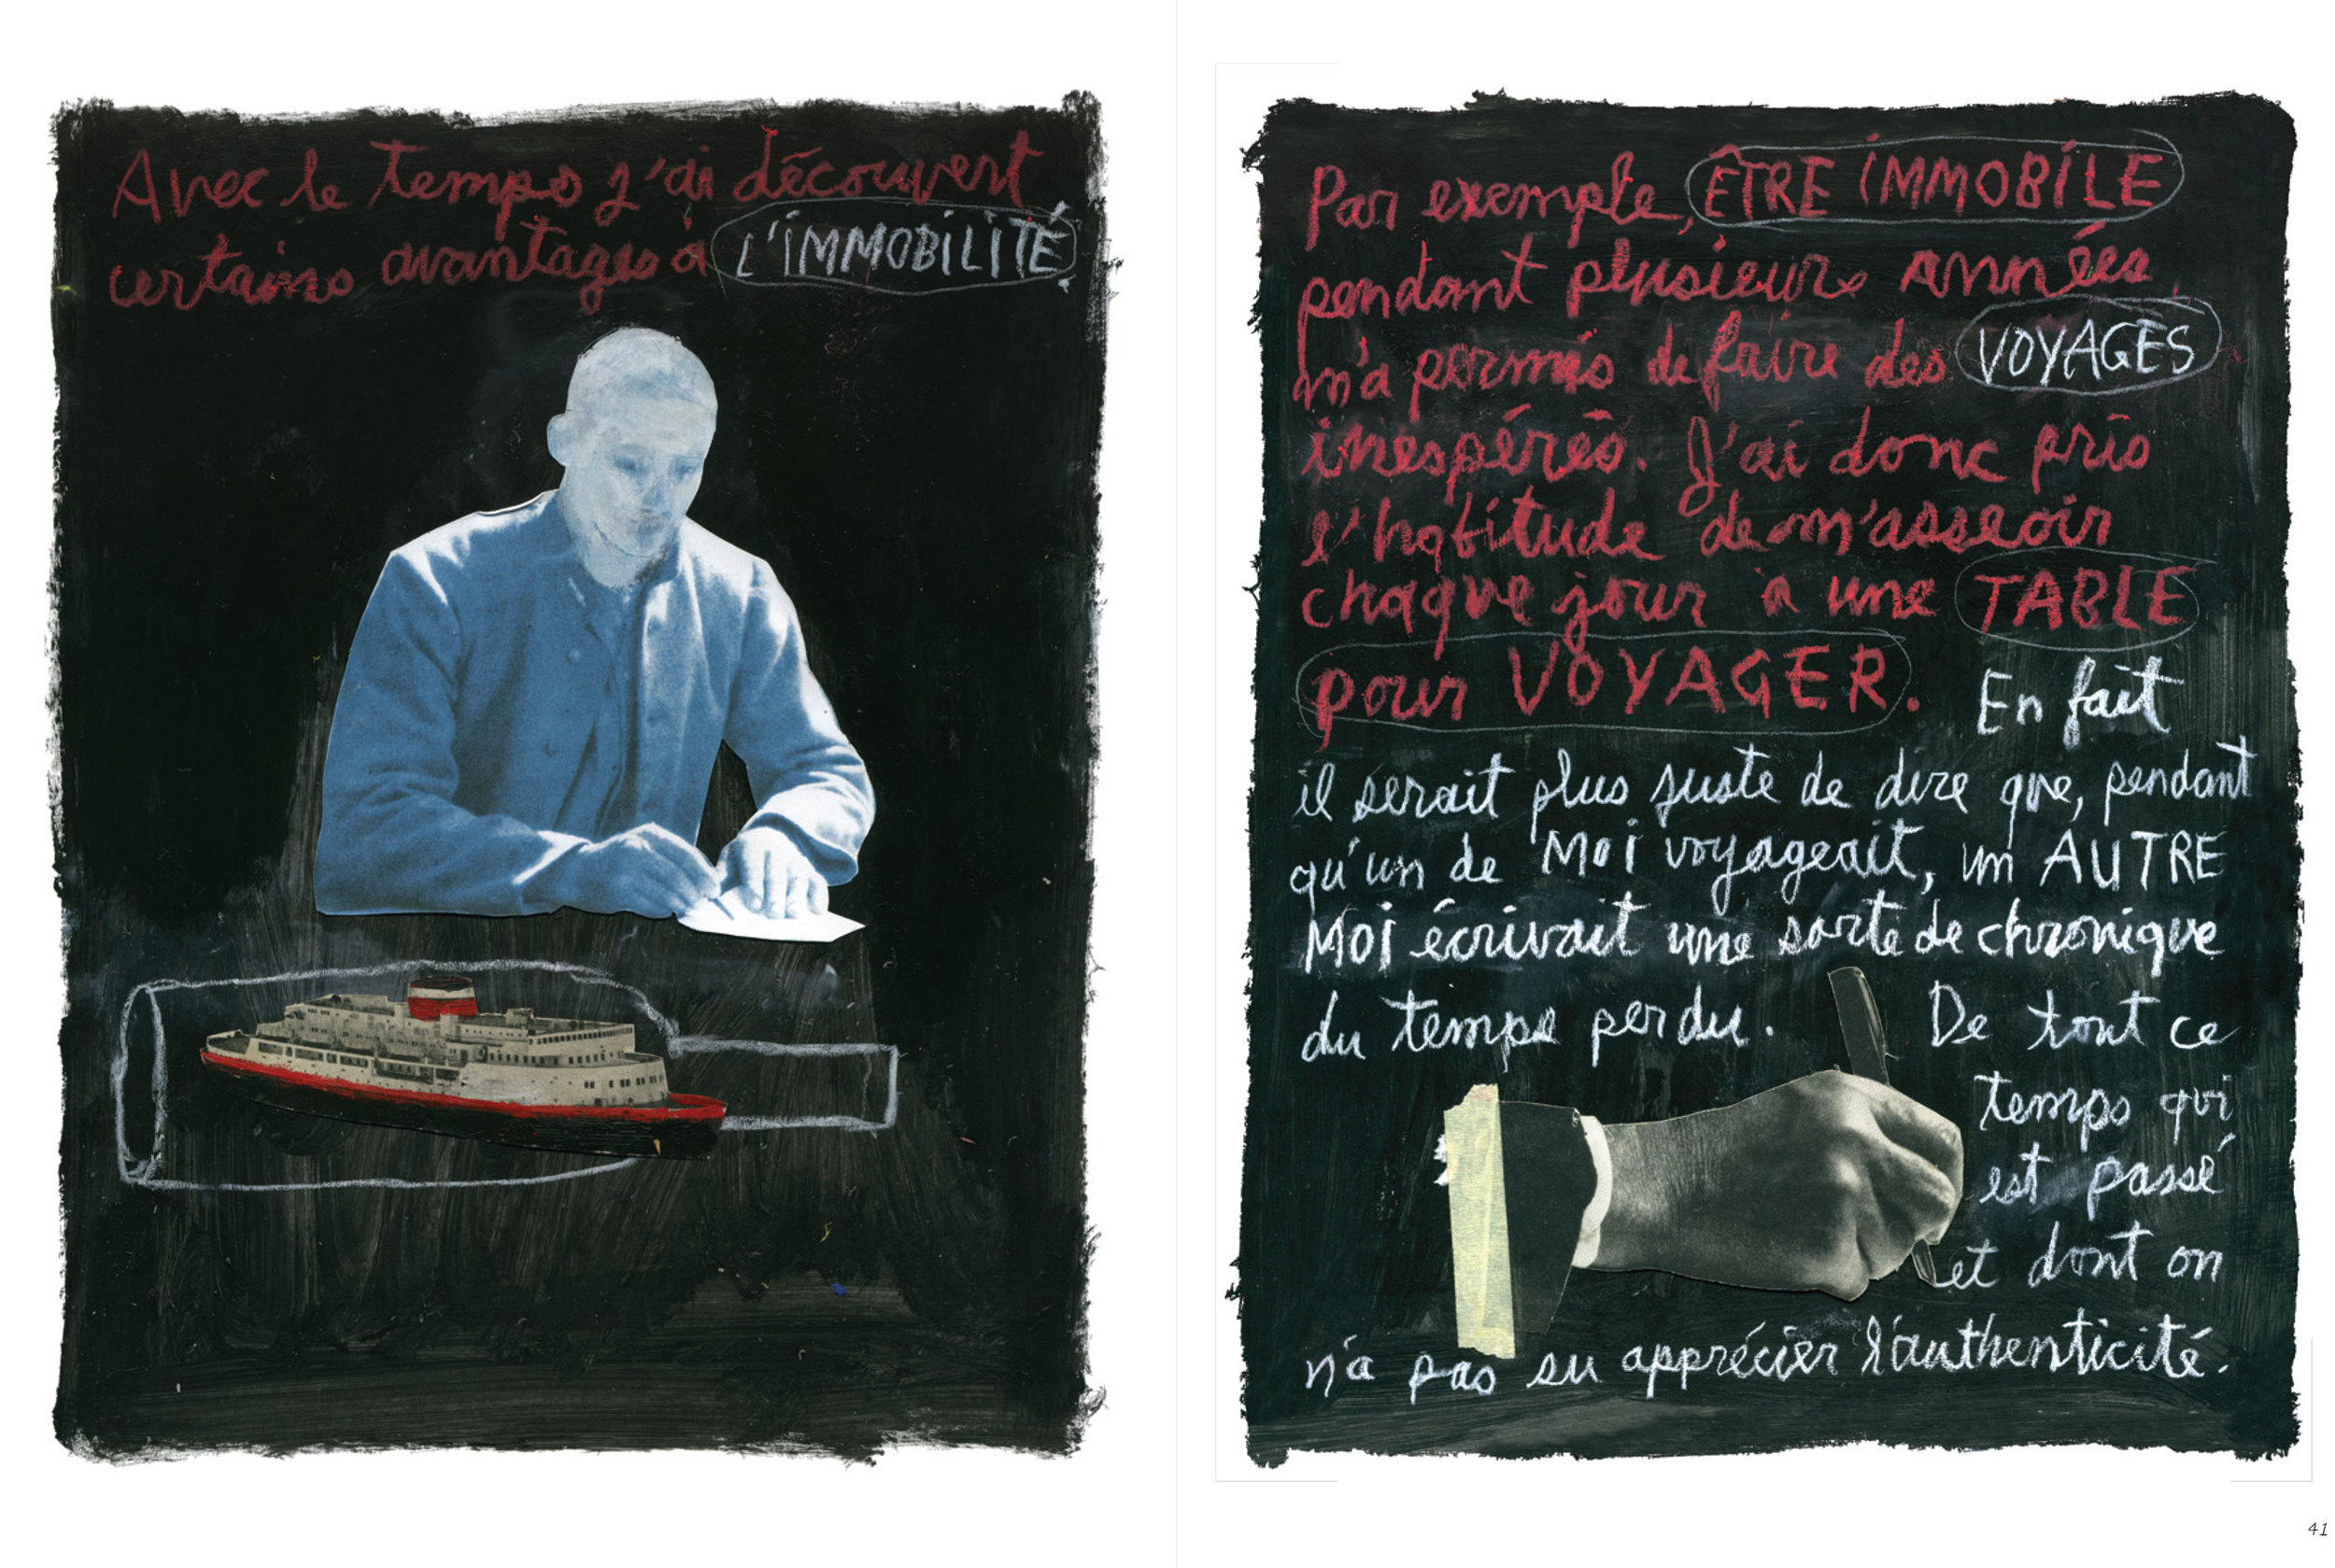 Avec le temps j'ai découvert
certains avantages à L'IMMOBILITÉ.
Par exemple, ÊTRE IMMOBILE
pendant plusieurs années
m'a permis de faire des VOYAGES
inespérés. J'ai donc pris
l'habitude de m'asseoir
chaque jour à une TABLE
pour VOYAGER. En fait
il serait plus juste de dire que, pendant
qu'un de Moi voyageait, un AUTRE
Moi écrivait une sorte de chronique
du temps perdu. De tout ce
temps qui
est passé
et dont on
n'a pas su apprécier l'authenticité.
41